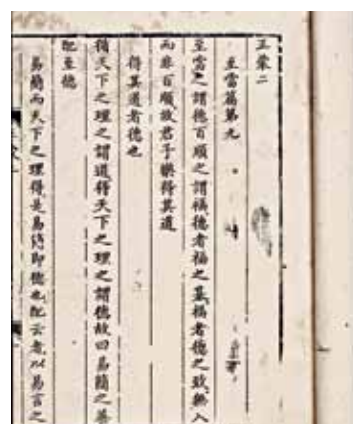 正蒙二
至當篇第九
至當之謂德百順之謂福德者福之基福者德之致無入
而非百順故君子樂得其道
得其道者德也
循天下之理之謂道得天下之理之謂德故曰易簡之善
配至德
易簡而天下之理得是易簡即德也配云者以易言之